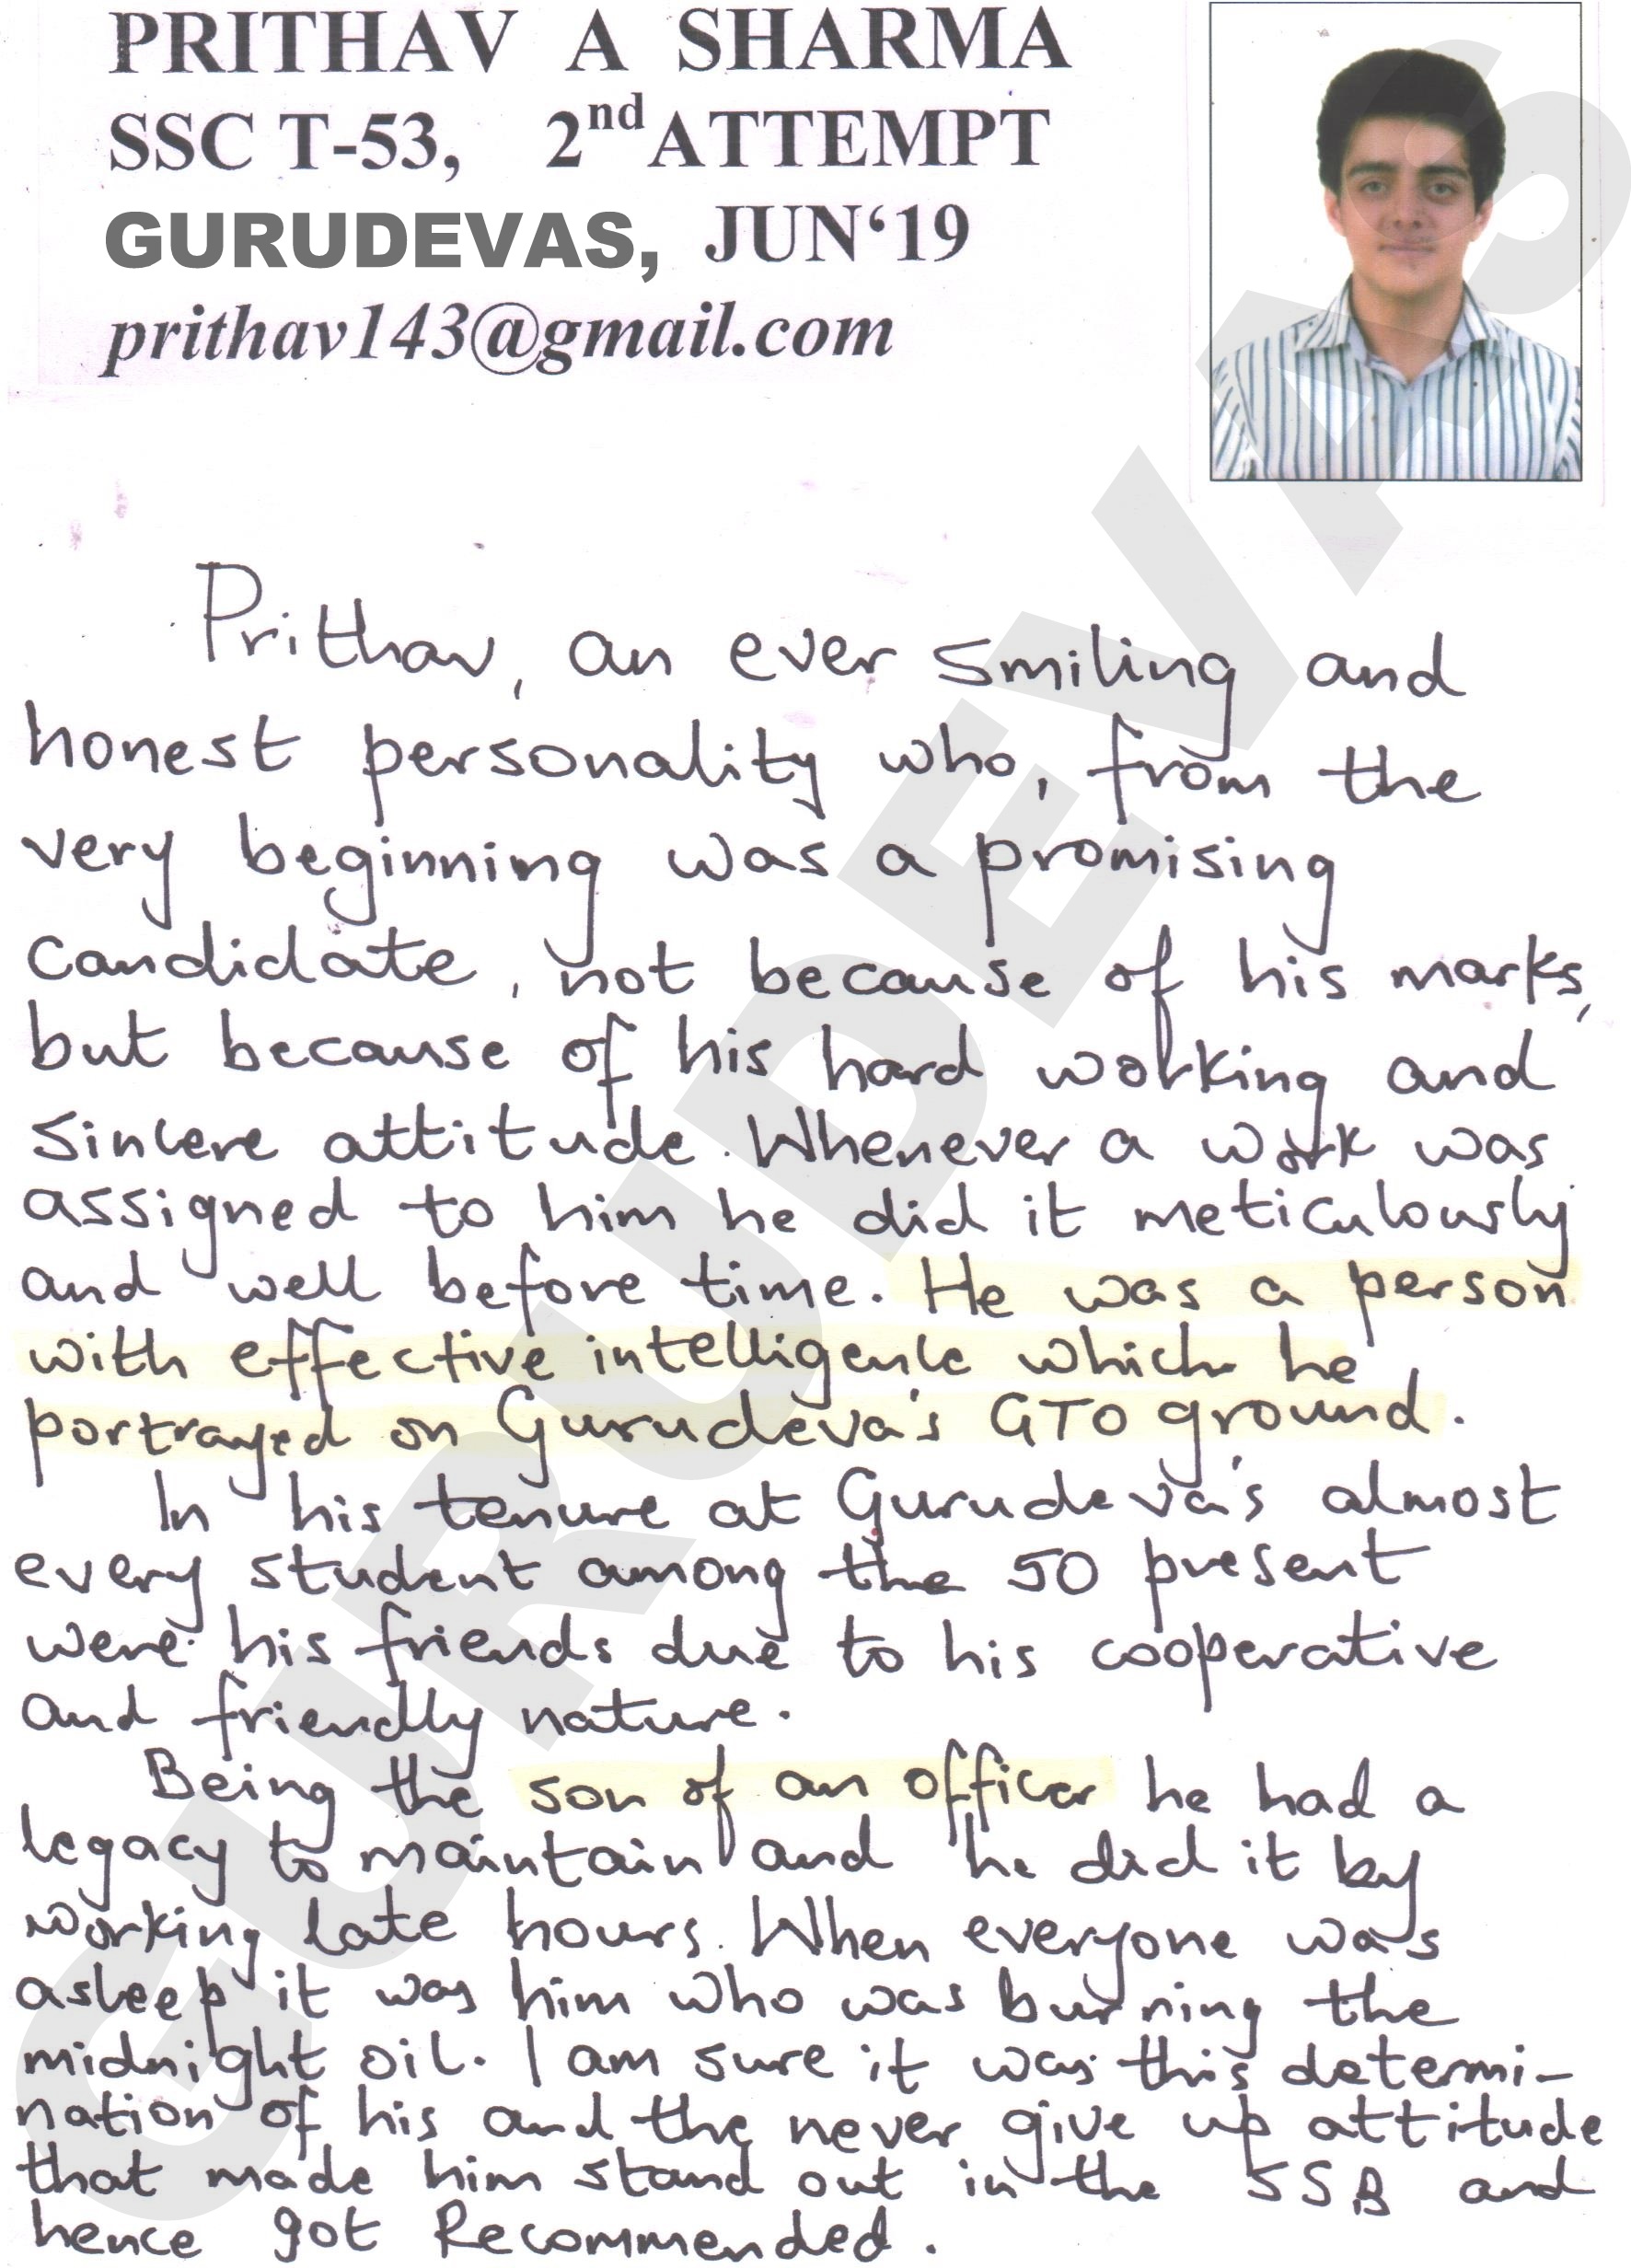 PRITHAV A SHARMA
SSC T-53, 2nd ATTEMPT
GURUDEVAS, JUN‘19
prithav143@gmail.com
Prithav, an ever smiling and
honest personality who, from the
very beginning was a promising
candidate, not because of his marks,
but because of his hard working and
sincere attitude. Whenever a work was
assigned to him he did it meticulously
and well before time. He was a person
with effective intelligence which he
portrayed on Gurudeva's GTO ground.
In his tenure at Gurudeva's almost
every student among the 50 present
were his friends due to his cooperative
and friendly nature.
Being the son of an officer he had a
legacy to maintain and he did it by
working late hours. When everyone was
asleep it was him who was burning the
midnight oil. I am sure it was this determi-
nation of his and the never give up attitude
that made him stand out in the SSB and
hence got Recommended.
GURUDEVAS